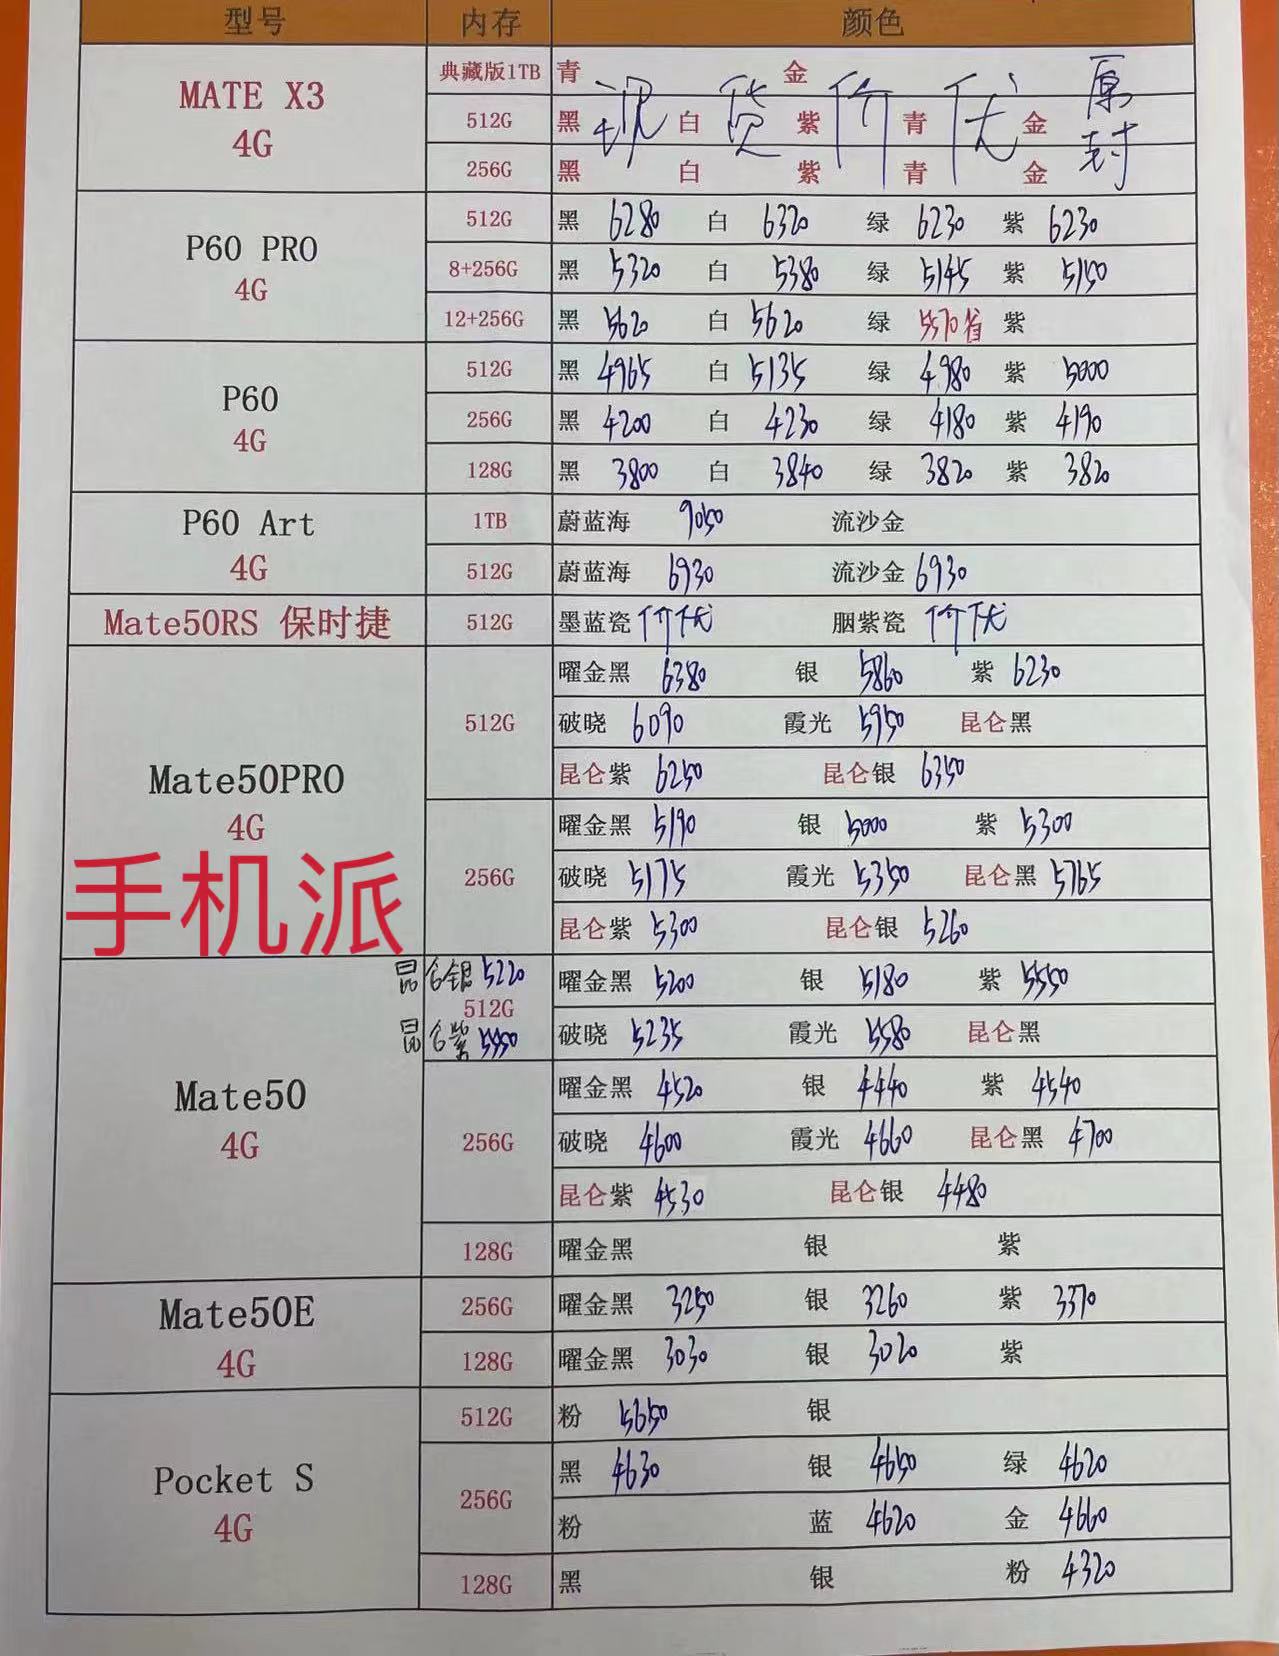 型号 内存 颜色
MATE X3 4G
典藏版1TB 青 金
512G 黑 白 紫 青 金
256G 黑 白 紫 青 金
现货价优 原封
P60 PRO 4G
512G 黑 6280 白 6320 绿 6230 紫 6230
8+256G 黑 5320 白 5380 绿 5145 紫 5150
12+256G 黑 5620 白 5620 绿 5570省 紫
P60 4G
512G 黑 4965 白 5135 绿 4980 紫 5000
256G 黑 4200 白 4230 绿 4180 紫 4190
128G 黑 3800 白 3840 绿 3820 紫 3820
P60 Art 4G
1TB 蔚蓝海 9050 流沙金
512G 蔚蓝海 6930 流沙金 6930
Mate50RS 保时捷 512G 墨蓝瓷 价优 胭紫瓷 价优
Mate50PRO 4G
512G 曜金黑 6380 银 5860 紫 6230
破晓 6090 霞光 5950 昆仑黑
昆仑紫 6250 昆仑银 6350
256G 曜金黑 5190 银 5000 紫 5300
破晓 5175 霞光 5350 昆仑黑 5765
昆仑紫 5300 昆仑银 5260
手机派
Mate50 4G
昆仑银 5220
512G 曜金黑 5200 银 5180 紫 5550
昆仑紫 5550
破晓 5235 霞光 5580 昆仑黑
256G 曜金黑 4520 银 4440 紫 4540
破晓 4600 霞光 4660 昆仑黑 4700
昆仑紫 4530 昆仑银 4480
128G 曜金黑 银 紫
Mate50E 4G
256G 曜金黑 3250 银 3260 紫 3370
128G 曜金黑 3030 银 3020 紫
Pocket S 4G
512G 粉 5650 银
256G 黑 4630 银 4650 绿 4620
粉 蓝 4620 金 4660
128G 黑 银 粉 4320